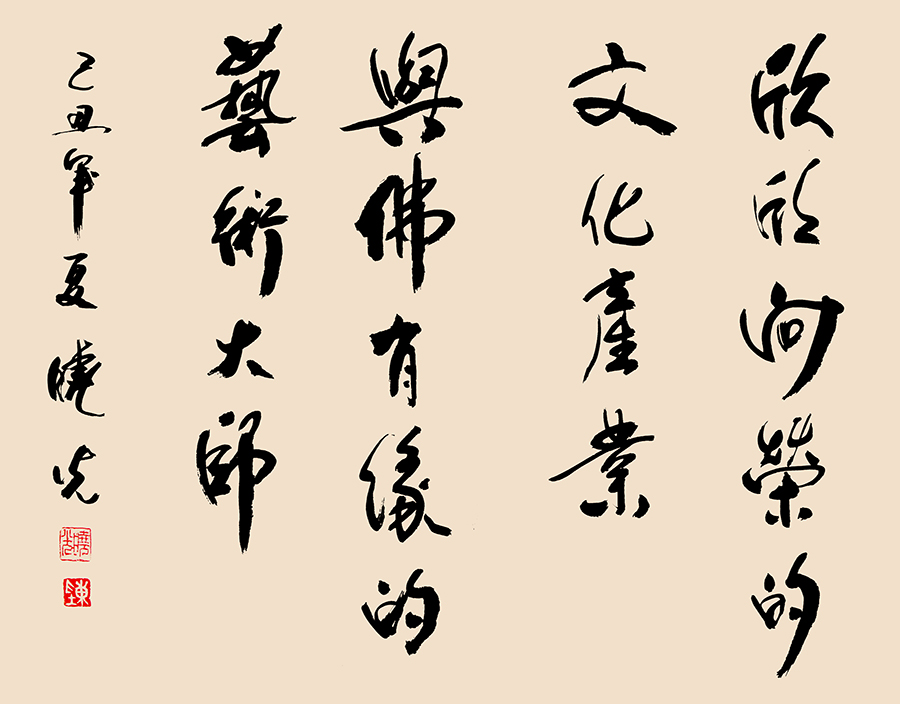 欣欣向榮的
文化產業
與佛有緣的
藝術大師
己丑年夏曉光
曉光
陳